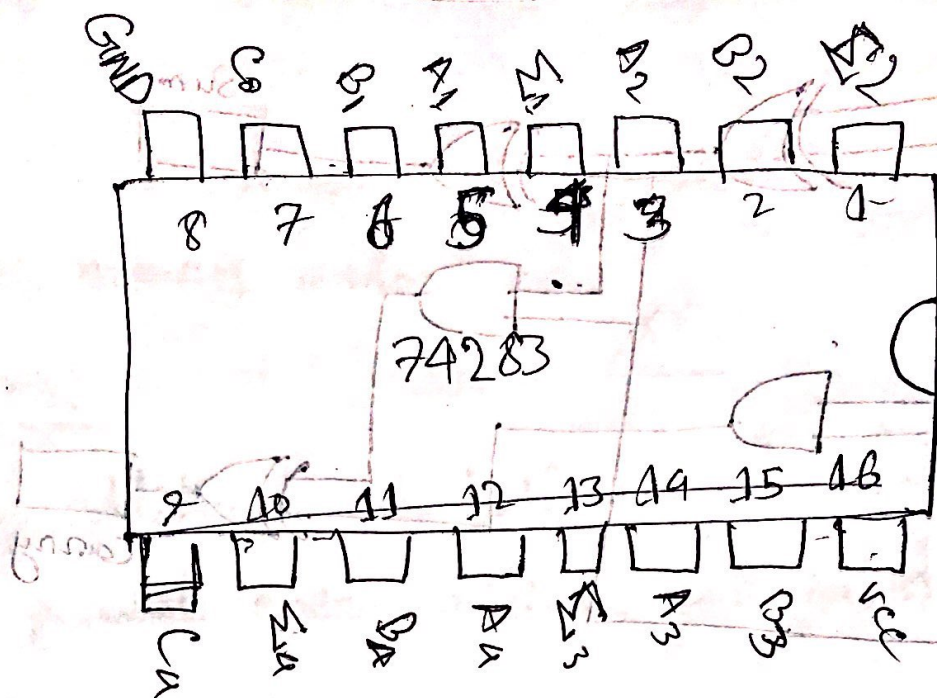 GND C0 B1 A1 Σ1 A2 B2 Σ2
8 7 6 5 4 3 2 1
74283
9 10 11 12 13 14 15 16
C4 Σ4 B4 A4 Σ3 A3 B3 VCC
Sum
Carry